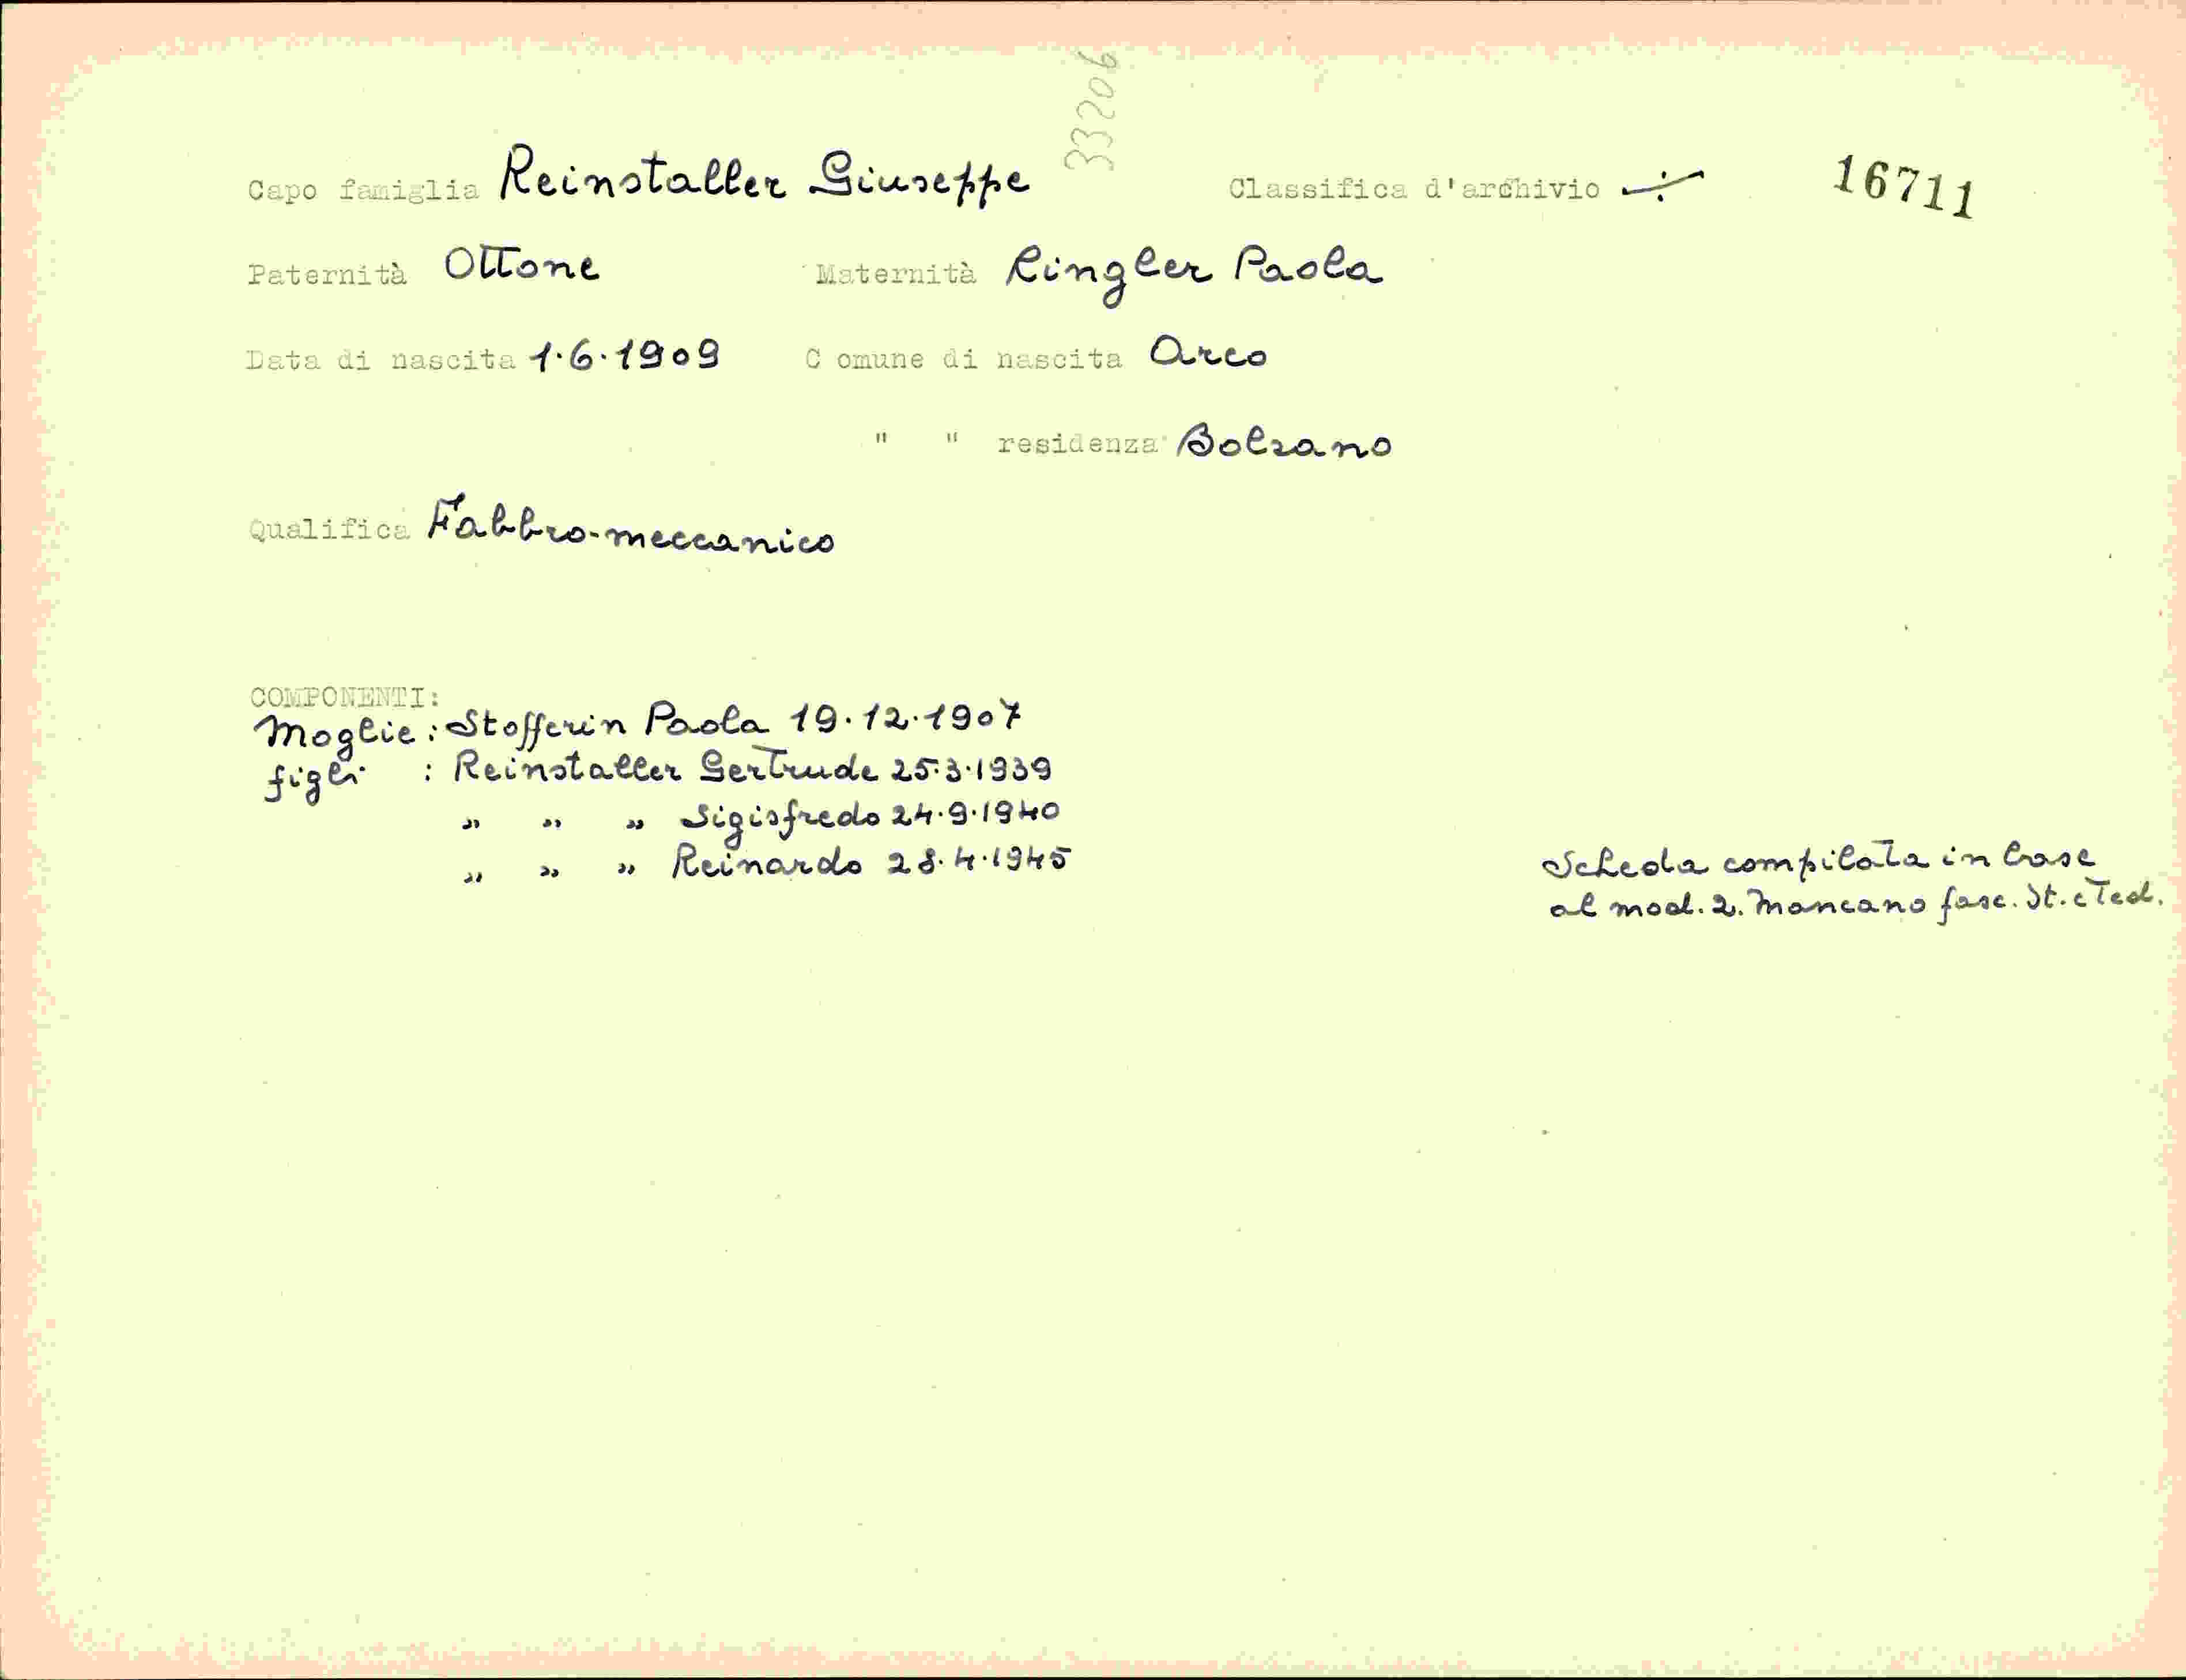 33206
Capo famiglia Reinstaller Giuseppe Classifica d'archivio ./. 16711
Paternità Ottone Maternità Ringler Paola
Data di nascita 1.6.1909 C omune di nascita Arco
" " residenza Bolzano
Qualifica Fabbro-meccanico
COMPONENTI:
Moglie: Stofferin Paola 19.12.1907
figli : Reinstaller Gertrude 25.3.1939
" " " Sigisfredo 24.9.1940
" " " Reinardo 28.4.1945
Scheda compilata in base
al mod. 2. Mancano fasc. It. e Ted.